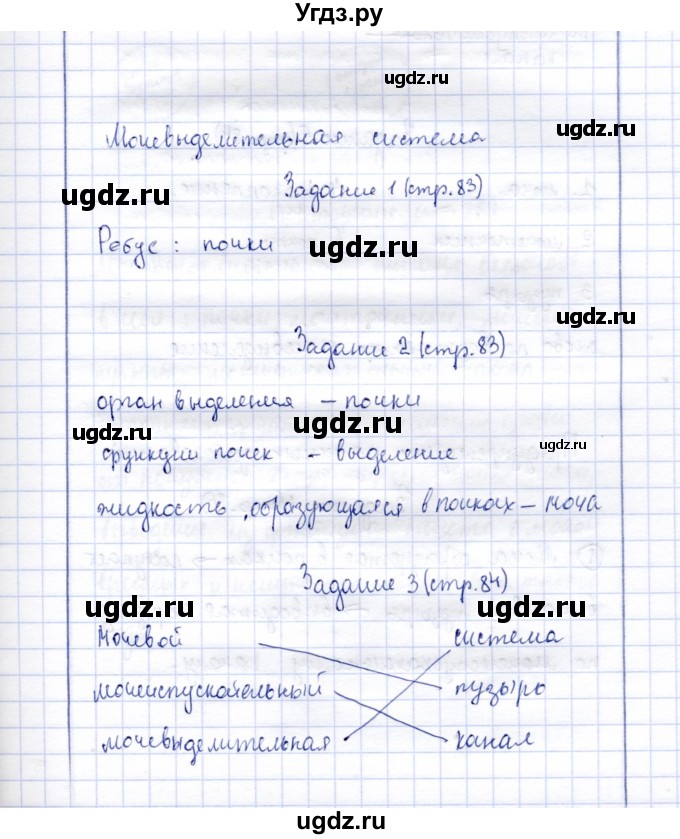 Угдз.ру
ugdz.ru
ugdz.ru
Мочевыделительная система
Задание 1 (стр.83)
ugdz.ru
ugdz.ru
Ребус : почки
ugdz.ru
ugdz.ru
Задание 2 (стр.83)
орган выделения – почки
ugdz.ru
ugdz.ru
ugdz.ru
функции почек – выделение
жидкость, образующаяся в почках – моча
Задание 3 (стр.84)
ugdz.ru
ugdz.ru
Мочевой система
мочеиспускательный пузырь
мочевыделительная канал
ugdz.ru
ugdz.ru
ugdz.ru
ugdz.ru